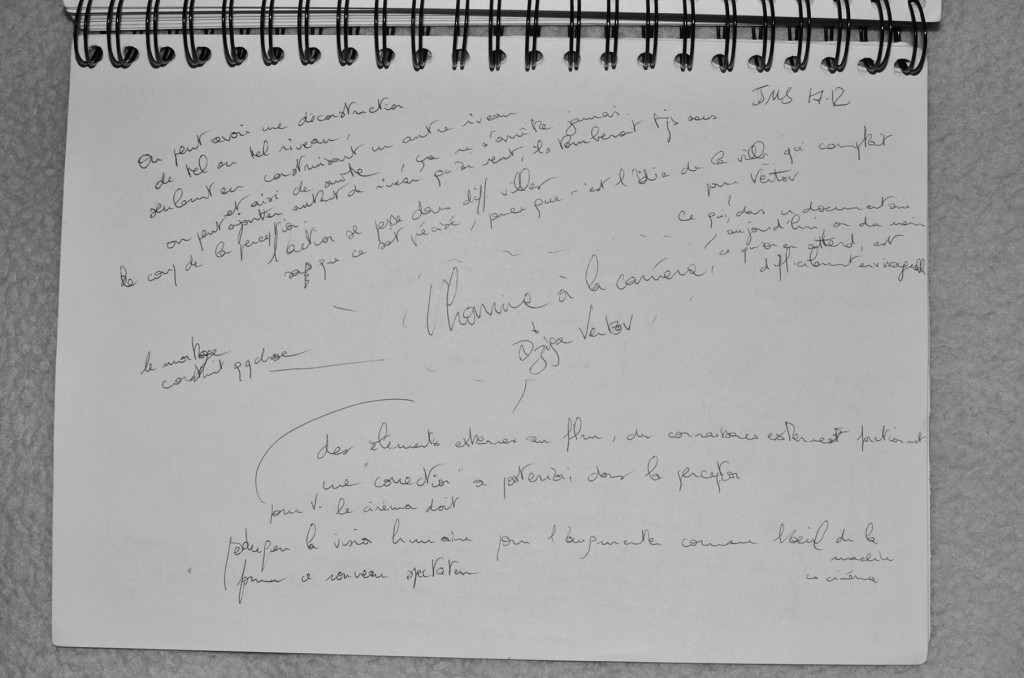 JMS 17.12
On peut avoir une déconstruction
de tel ou tel niveau,
seulement en construisant un autre niveau
et ainsi de suite, ça ne s'arrête jamais
on peut ajouter autant de niveau qu'on veut, ils tomberont tjs sous
le coup de la perception
l'action se passe dans diff villes
sans que ce soit précisé, parce que c'est l'idée de la ville qui comptait
pour Vertov
ce qui, dans un documentaire
aujourd'hui, ou du moins
ce qu'on en attend, est
difficilement envisageable
l'homme à la caméra,
Dziga Vertov
le montage
construit qqchose
des éléments externes au film, des connaissances externes fonctionnent
une correction a posteriori dans la perception
pour V. le cinéma doit
la vision humaine pour l'augmenter comme l'oeil de la
machine
cinéma
former ce nouveau spectateur